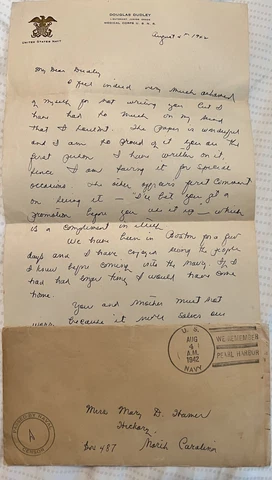 DOUGLAS DUDLEY
MEDICAL CORPS U.S.N.R.
UNITED STATES NAVY
August 4th 1942
My Dear Dudley
I feel indeed very much ashamed
of myself for not writing you but I
have had so much on my mind
that I haven't. The paper is wonderful
and I am so proud of it you are the
first person I have written on it,
since I am saving it for special
occasions. The other officers first comment
on seeing it — I'll bet you get a
promotion before you use it up — which
is a compliment in itself
We have been in Boston for a few
days and I have enjoyed seeing the people
I knew before coming into the navy. If I
had had time I would have come
home.
You and mother must not
worry because it never solves our
U. S.
AUG
4
A.M.
1942
NAVY
WE REMEMBER
PEARL HARBOR
PASSED BY NAVAL
CENSOR
Miss Mary D. Hamer
Hickory
Box 487 North Carolina